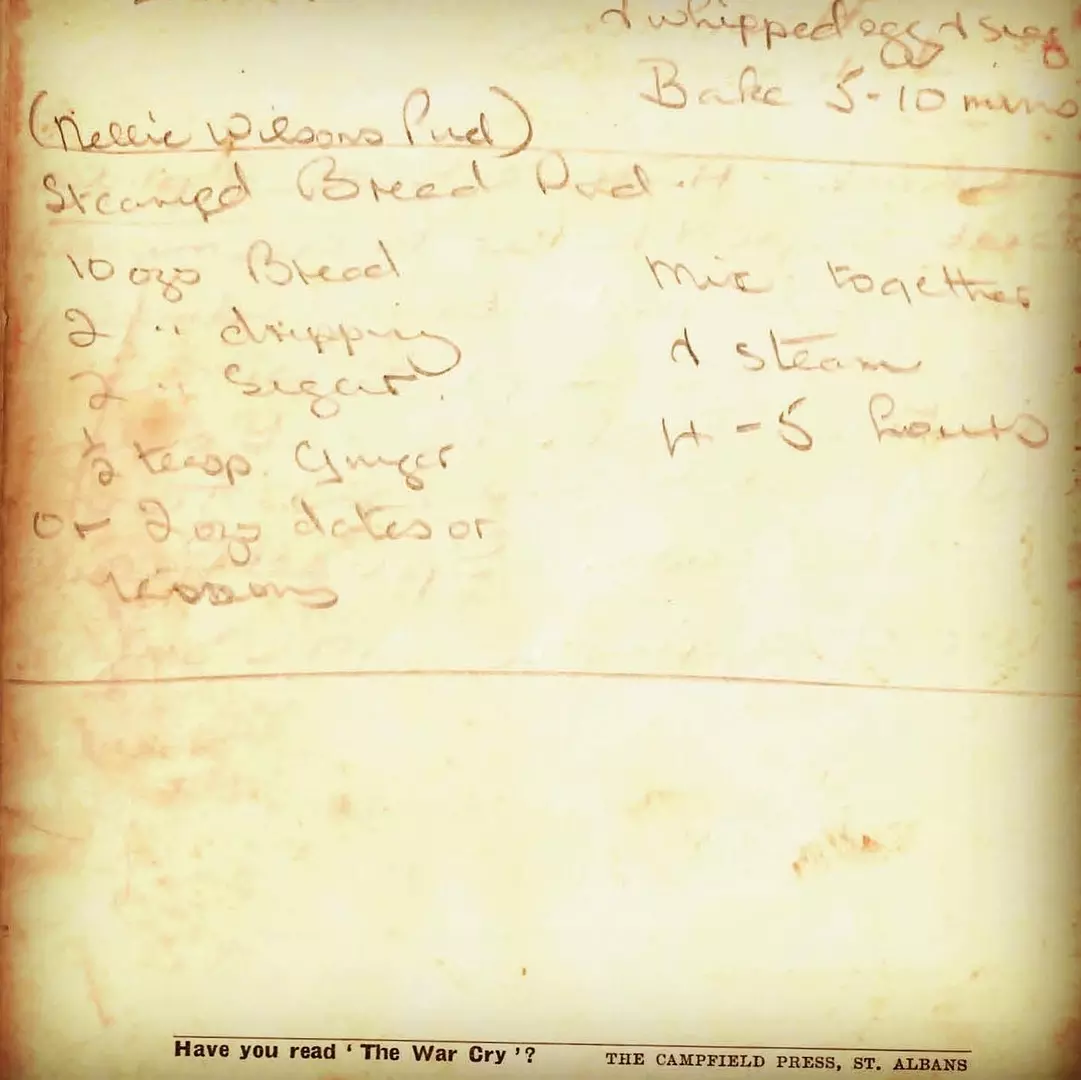 & whipped egg & sug
Bake 5-10 mins
(Nellie Wilsons Pud)
Steamed Bread Pud.
10 ozs Bread
2 " dripping
2 " Sugar
½ teasp. Ginger
or 2 ozs dates or
Mix together
& steam
4-5 hours
Have you read ‘The War Cry’?
THE CAMPFIELD PRESS, ST. ALBANS